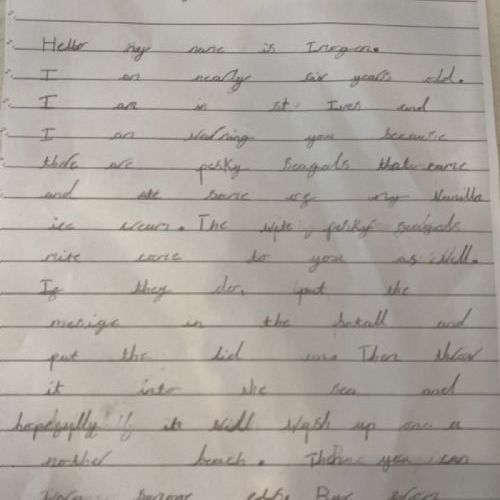 Hello my name is Imogen.
I am nearly six years old.
I am in st Ives and
I am warning you because
there are pesky Seagals that came
and ate some of my Vanilla
ice cream. The pesky seagals
mite come to you as well.
If they do, put the
mesige in the botall and
put the lid one. Then throw
it into the sea and
hopefully it will wash up one a
nother beach. Then you can